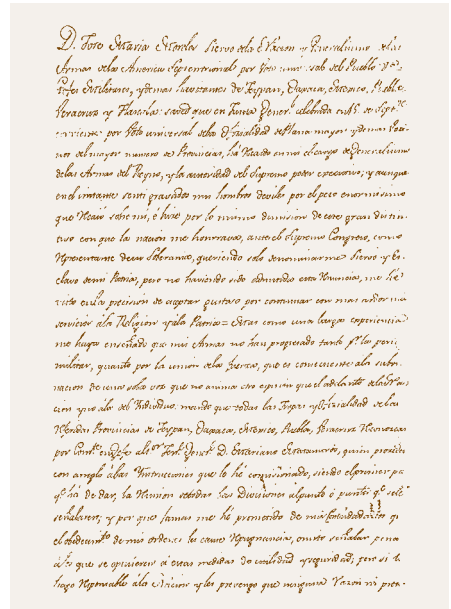 D. José María Morelos Siervo de la Nación y Generalísimo de las
Armas de la America Septentrional por Voto universal del Pueblo
Gefes Militares, y demas havitantes de Tecpan, Oaxaca, Mexico, Puebla
Veracruz y Tlaxcala: saved que en Junta General celebrada en 15. de Septe.
corriente por Voto universal de la Oficialidad de Plana mayor y demas
nos del mayor numero de Provincias, ha Recaido en mi el cargo de Generalísimo
de las Armas del Reyno, y la autoridad del Supremo poder executivo, y aunque
en el instante senti gravados mis hombros deviles por el peso enormisimo
que Recaio sobre mi, é hize por lo mismo dimision de este gran
con que la nacion me honrrava, ante el Supremo Congreso, como
Representante de su Soberania, queriendo solo denominarme Siervo y Es-
clavo de mi Patria, pero no haviendo sido admitida esta Renuncia, me
en la precision de aceptar gustoso por continuar con mas ardor mis
servicios á la Religion y á la Patria = Mas como una larga experiencia
me haya enseñado que mis Armas no han progresado tanto pr. la
militar, quanto por la union de la fuerza, que es conveniente á la subor-
nacion de una sola voz que no anima otro espiritu que el adelanto de la Na-
cion y no al del Individuo: mando que todas las Tropas y Oficialidad de las
Provincias de Tecpan, Oaxaca, Mexico, Puebla, Veracruz Reconozcan
por á Dn. Mariano Matamoros, quien procederá
con arreglo á las Instrucciones que le he comisionado, siendo el primer pa-
qe. ha de dar, la Reunion de todas las Diviciones al punto ó puntos qe. seles
señalaren; y por que jamas me he prometido de mis Comandantes qe.
el obedecimto. de mis ordenes les cause Repugnancia, omito señalar pena
á los que se opusieren á estas medidas de utilidad y seguridad; pero si
hago Responsable á la Nacion y les prevengo que ninguna Razon ni